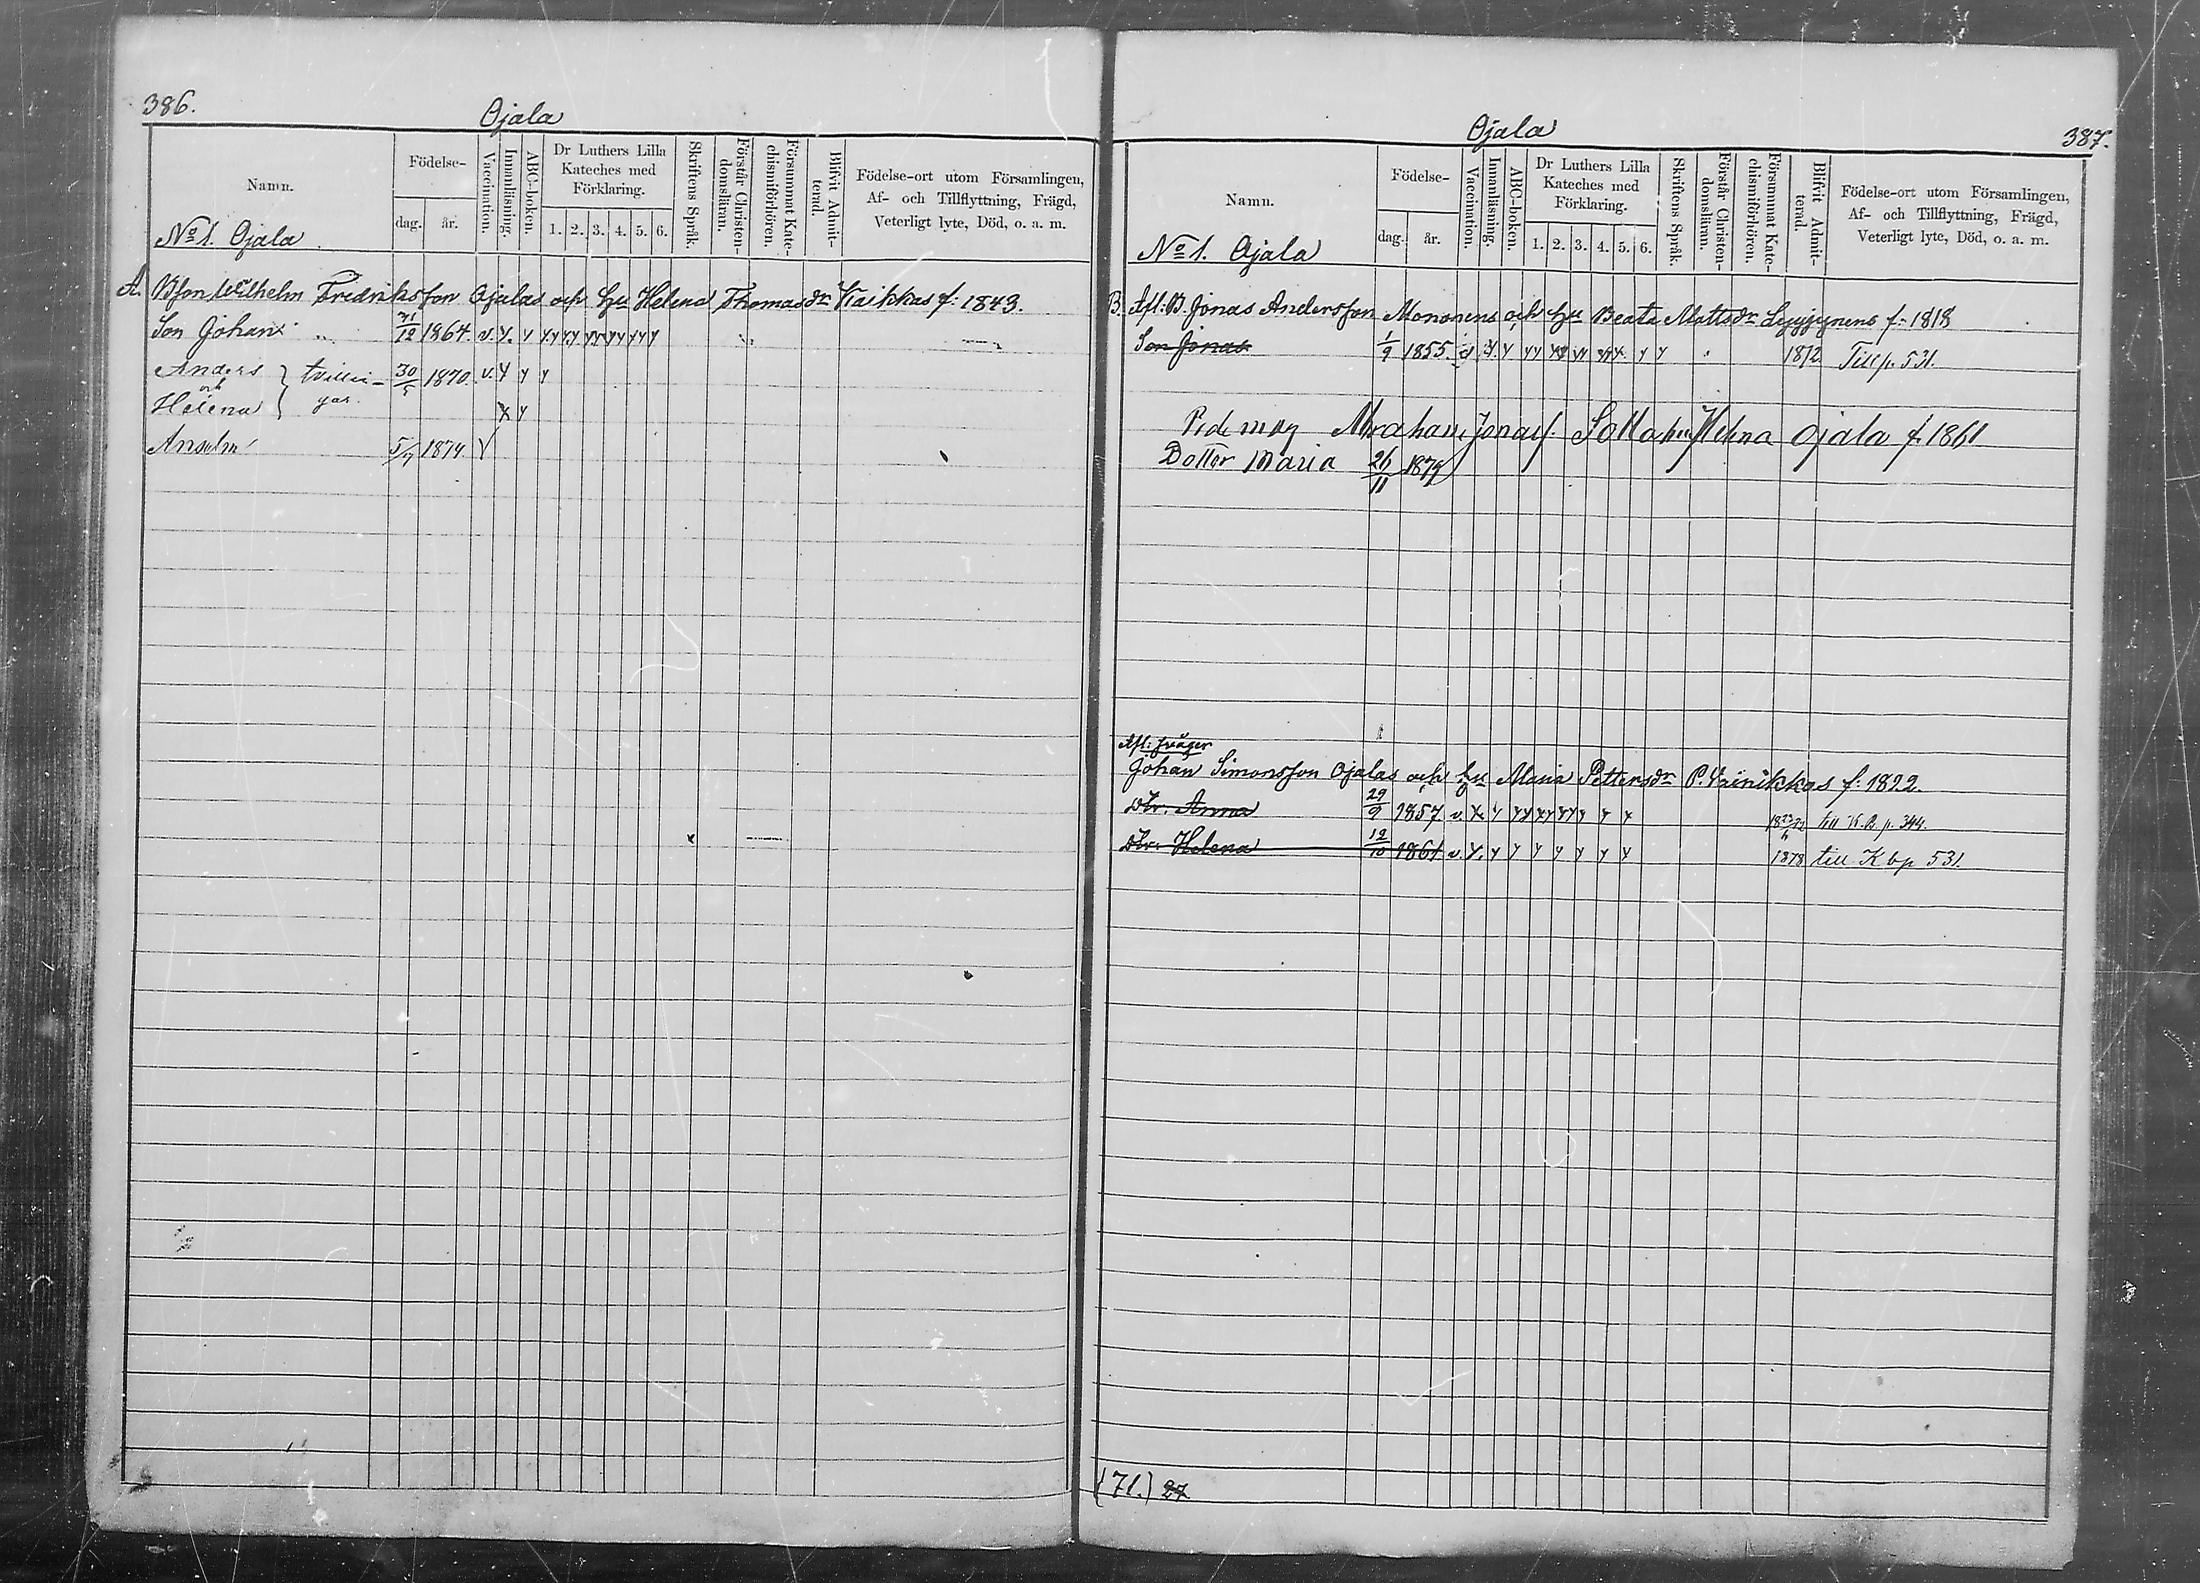 386.
Ojala
Namn.
Födelse-
dag.
år.
Vaccination.
Innanläsning.
ABC-boken.
Dr Luthers Lilla Kateches med Förklaring.
1. 2. 3. 4. 5. 6.
Skriftens Språk.
Förstår Christendomsläran.
Försummat Katechismiförhören.
Blifvit Admitterad.
Födelse-ort utom Församlingen,
Af- och Tillflyttning, Frägd,
Veterligt lyte, Död, o. a. m.
No 1. Ojala
A. Bson Wilhelm Fredriksson Ojalas och hu Helena Thomasdr Kaikkas f: 1843.
Son Johan 31/12 1864. v. y. y yy yy yy yy yy y
Anders 30/5 1870. v. y y y
och } tvillingar.
Helena x y
Anselm 5/7 1874 v
Ojala
387.
Namn.
Födelse-
dag.
år.
Vaccination.
Innanläsning.
ABC-boken.
Dr Luthers Lilla Kateches med Förklaring.
1. 2. 3. 4. 5. 6.
Skriftens Språk.
Förstår Christendomsläran.
Försummat Katechismiförhören.
Blifvit Admitterad.
Födelse-ort utom Församlingen,
Af- och Tillflyttning, Frägd,
Veterligt lyte, Död, o. a. m.
No 1. Ojala
B. Afl: B. Jonas Andersson Monnens och hu Beata Mattsdr f: 1818
Son Jonas 1/9 1855. 1872 Till p. 531.
mag Abraham Jonass. hu Helena Ojala f. 1861
Dotter Maria 26/11 1879
Afl: svåger
Johan Simonsson Ojalas och hu Maria Pettersdr P. Vainikkas f: 1822.
Dtr. Anna 29/9 1857 v. x. y till K. B. p. 344.
Dtr. Helena 12/10 1861 v. y. y y y y y y y 1878 till K bp 531.
(71.) 27